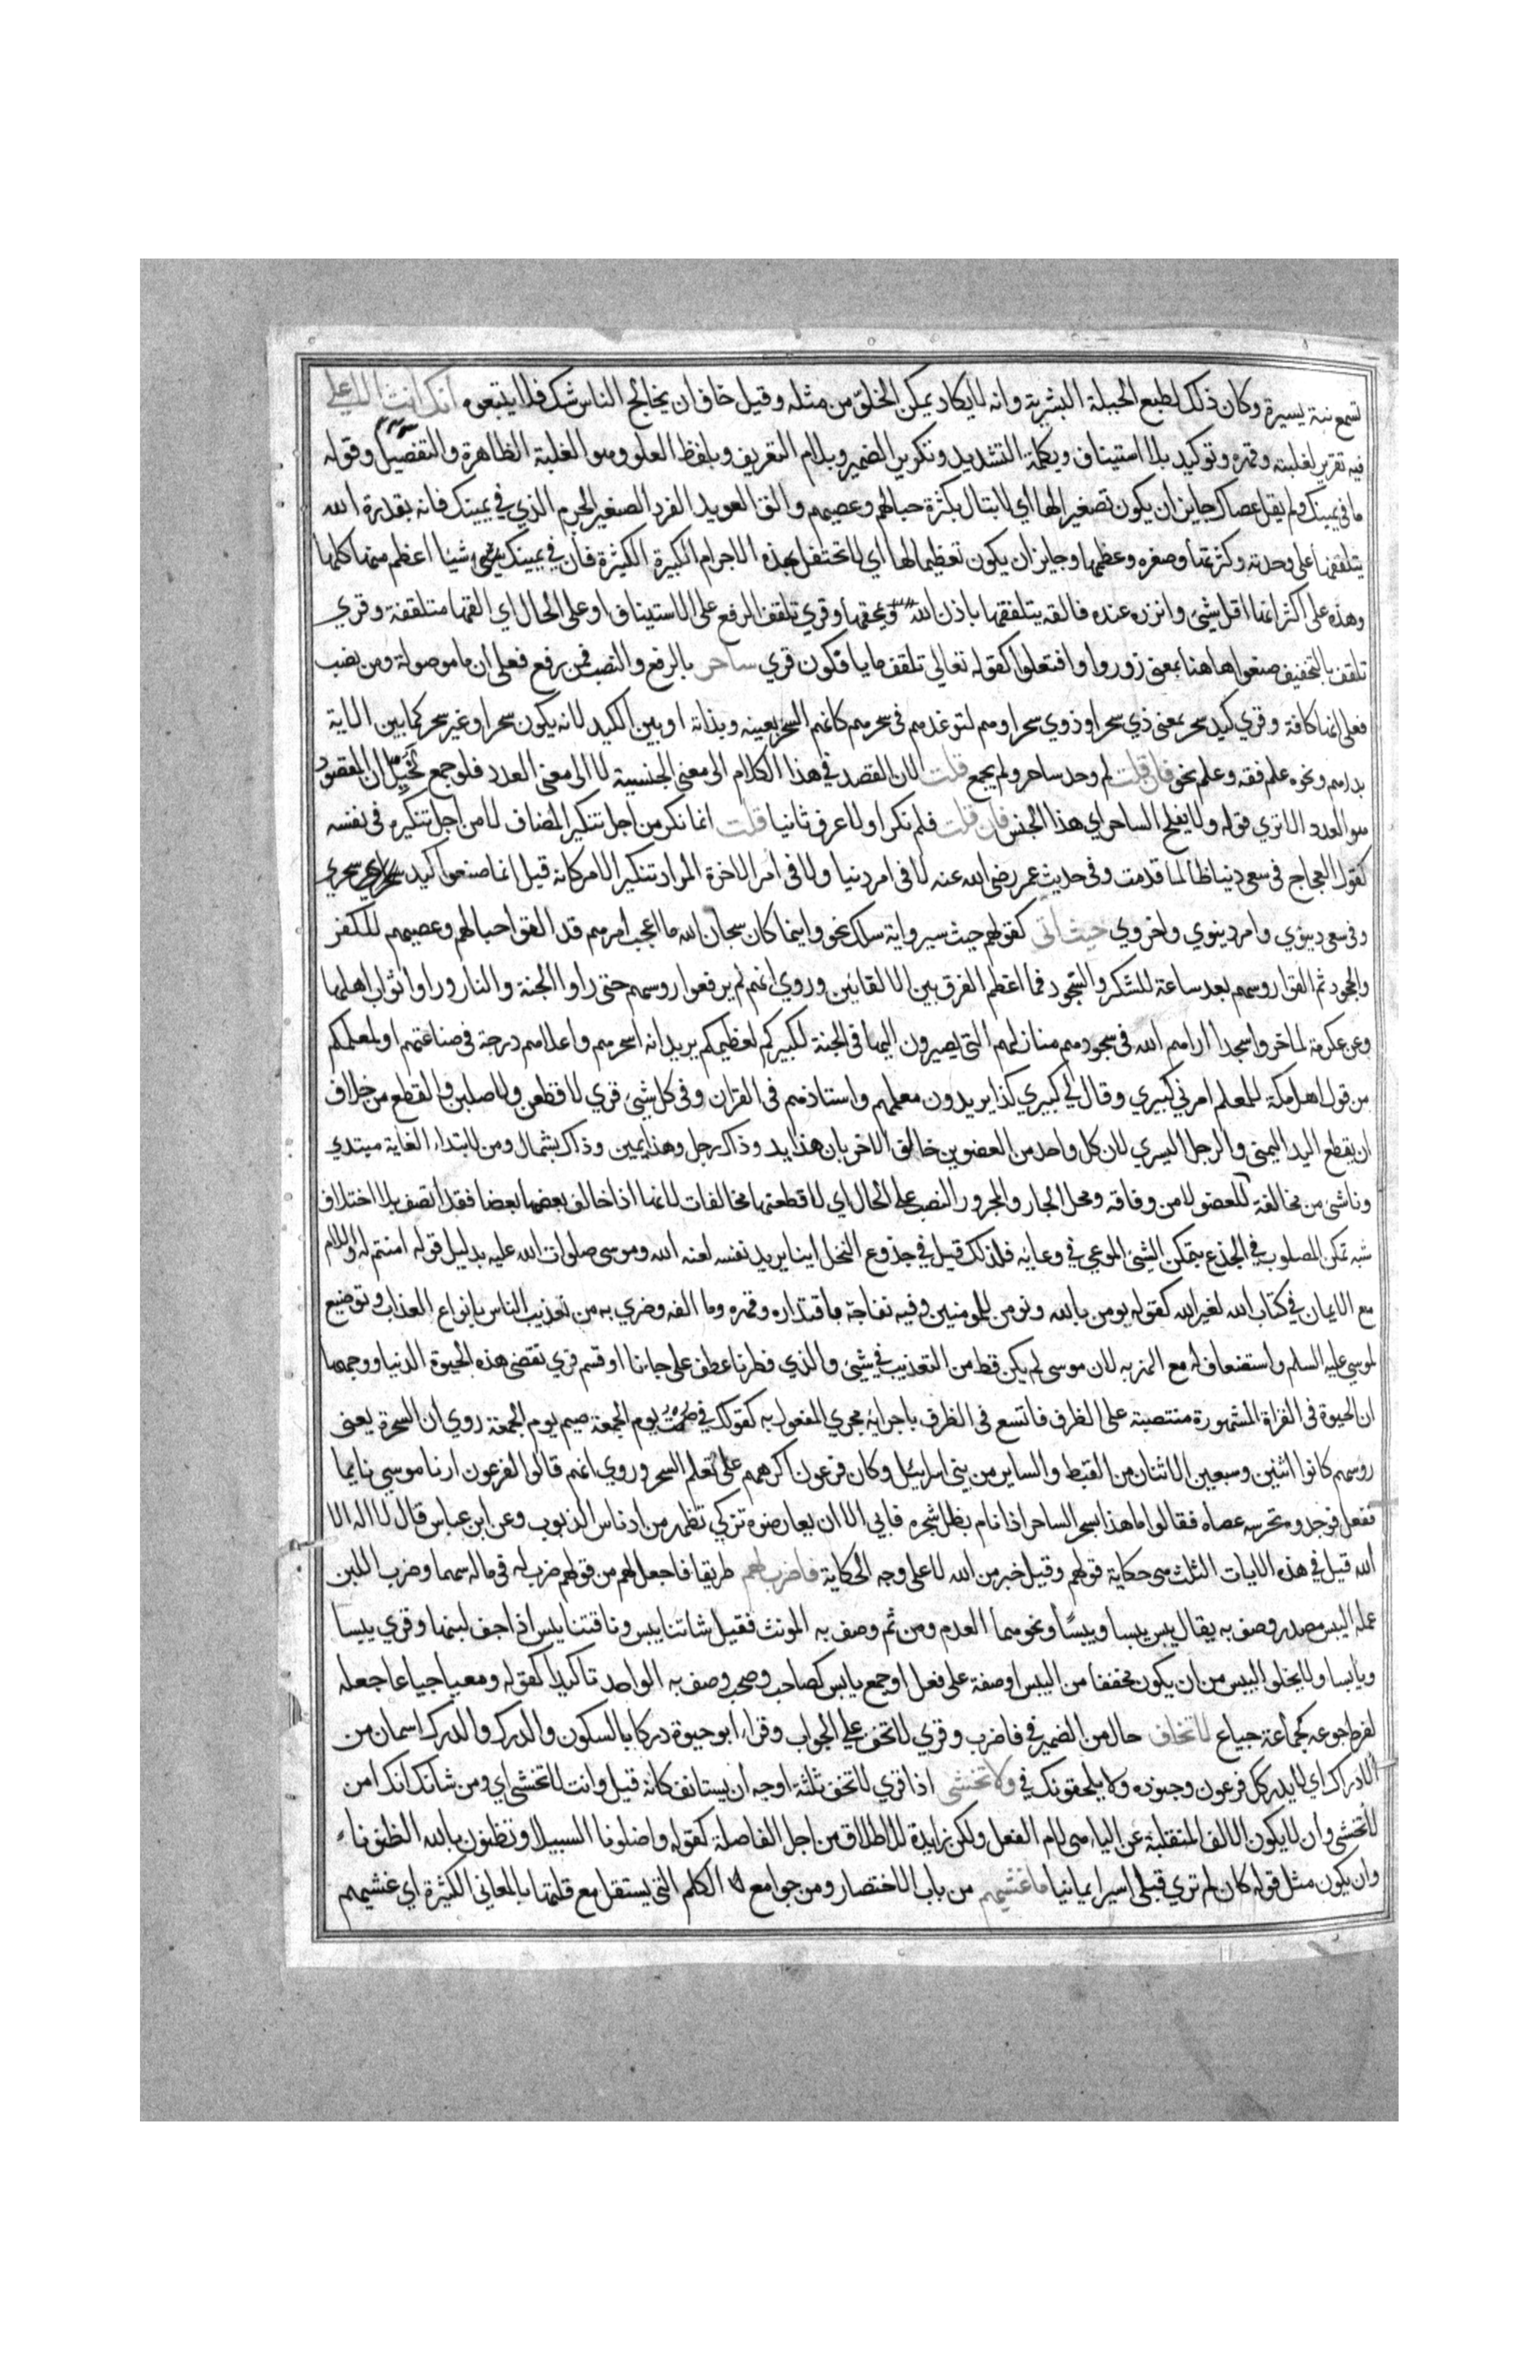 تسمع نبئة يسيرة وكان ذلك لطبع الجبلة البشرية وانه لا يكاد يمكن الخلو من مثله وقيل خاف ان يخالج الناس شك فلا يتبعوه انك انت الاعلى
فيه تقرير لغلبته وقهره وتوكيد بلا استيناف وبكلمة التشديد وتكرير الضمير وبلام التعريف وبلفظ العلو وهو الغلبة الظاهرة والتفضيل وقوله
ما في يمينك ولم يقل عصاك جايز ان يكون تصغيرا لها اي لا تبال بكثرة حبالهم وعصيهم والق العويد الفرد الصغير الجرم الذي في يمينك فانه بقدرة الله
يتلقفها على وحدته وكثرتها وصغره وعظمها وجايز ان يكون تعظيما لها اي لا تحتفل بهذه الاجرام الكبيرة الكثيرة فان في يمينك شيئا اعظم منها كلها
وهذه على اكثر انها اقل شيئ وانزره عنده فالقه يتلقفها باذن الله ويمحقها وقري تلقف الرفع على الاستيناف او على الحال اي القها متلقفة وقري
تلقف بالتخفيف صنعوا هاهنا بمعنى زوروا وافتعلوا كقوله تعالى تلقف ما يافكون قري ساحر بالرفع والنصب فمن رفع فعلى ان ما موصولة ومن نصب
فعلى انها كافة وقري كيد سحر بمعنى ذي سحر او ذوي سحر او هم لتوغلهم في سحرهم كانهم السحر بعينه وبذاته او بين الكيد لانه يكون سحرا وغير سحر كما يبين الماية
بدرهم ونحوه علم فقه وعلم نحو فان قلت لم وحد ساحر ولم يجمع قلت لان القصد في هذا الكلام الى معنى الجنسية لا الى معنى العدد فلو جمع تخيل ان المقصود
هو العدد الا تري قوله ولا يفلح الساحر اي هذا الجنس فان قلت فلم نكر اولا عرف ثانيا قلت انما نكر من اجل تنكير المضاف لا من اجل تنكيره في نفسه
كقول العجاج في سعي دنيا طالما قدمت وفي حديث عمر رضي الله عنه لا في امر دنيا ولا في امر الاخرة المراد تنكير الامر كانه قيل انما صنعوا كيد سحري
وفي سعي دنيوي وامر دنيوي واخروي حيث اتى كقولهم حيث سير واية سلك نحو واينما كان سبحان الله ما اعجب امرهم قد القوا حبالهم وعصيهم للكفر
والجحود ثم القوا روسهم بعد ساعة للشكر والسجود فما اعظم الفرق بين الالقائين وروي انهم لم يرفعوا روسهم حتى راوا الجنة والنار وراوا ثواب اهلها
وعن عكرمة لما خروا سجدا اراهم الله في سجودهم منازلهم التي يصيرون اليها في الجنة لكبيركم لعظيمكم يريد انه اسحرهم واعلاهم درجة في صناعتهم او لمعلمكم
من قول اهل مكة للمعلم امرني كبيري وقال لي كبيري كذا يريدون معلمهم واستاذهم في القران وفي كل شيئ قري لاقطعن ولاصلبن والقطع من خلاف
ان يقطع اليد اليمنى والرجل اليسري لان كل واحد من العضوين خالف الاخر بان هذا يد وذاك رجل وهذا يمين وذاك شمال ومن لابتداء الغاية مبتدي
وناشئ من مخالفة العضو لا من وفاقه ومحل الجار والمجرور النصب على الحال اي لاقطعنها مخالفات لانها اذا خالف بعضها بعضا فقد اتصف بلا اختلاف
شبه تمكن المصلوب في الجذع بتمكن الشيئ الموعي في وعايه فلذلك قيل في جذوع النخل اينا يريد نفسه لعنه الله وموسى صلوات الله عليه بدليل قوله امنتم له واللام
مع الايمان في كتاب الله لغير الله كقوله يومن بالله ويومن للمومنين وفيه نفاجة باقتداره وقهره وما الفه وضري به من تعذيب الناس بانواع العذاب وتوضيع
لموسي عليه السلم واستضعاف له مع الهزء به لان موسى لم يكن قط من التعذيب في شيئ والذي فطرنا عطف على جاءنا او قسم قري تقضى هذه الحيوة الدنيا ووجهها
ان الحيوة في القراة المشهورة منتصبة على الظرف فاتسع في الظرف باجرايه مجري المفعول به كقولك في صمت يوم الجمعة صيم يوم الجمعة روي ان السحرة يعنى
روسهم كانوا اثنين وسبعين الاثنان من القبط والساير من بني اسرائيل وكان فرعون اكرههم على تعلم السحر وروي انهم قالوا لفرعون ارنا موسي نايما
ففعل فوجدوه تحرسه عصاه فقالوا ما هذا بسحر الساحر اذا نام بطل سحره فابي الا ان يعارضوه تزكي تطهر من ادناس الذنوب وعن ابن عباس قال لا اله الا
الله قيل في هذه الايات الثلث هي حكاية قولهم وقيل خبر من الله لا على وجه الحكاية فاضرب لهم طريقا فاجعل لهم من قولهم ضرب له في ماله سهما وضرب اللبن
عمله اليبس مصدر وصف به يقال يبس يبسا ويبسا ونحوهما العدم ومن ثم وصف به المونث فقيل شاتنا يبس وناقتنا يبس اذا جف لبنها وقري يبسا
ويابسا ولا يخلو اليبس من ان يكون مخففا من اليبس او صفة على فعل او جمع يابس كصاحب وصحب وصف به الواحد تاكيدا كقوله ومعيا جياعا جعله
لفرط جوعه كجماعة جياع لا تخاف حال من الضمير في فاضرب وقري لا تخف على الجواب وقراء ابو حيوة دركا بالسكون والدرك والدرك اسمان من
الادراك اي لا يدركك فرعون وجنوده ولا يلحقونك في ولا تخشى اذا قري لا تخف ثلثة اوجه ان يستانف كانه قيل وانت لا تخشى اي ومن شانك انك امن
لا تخشى وان لا يكون الالف المنقلبة عن الياء هي لام الفعل ولكن زايدة للاطلاق من اجل الفاصلة كقوله واضلونا السبيلا وتظنون بالله الظنونا
وان يكون مثل قوله كان لم تري قبلى اسيرا يمانيا ما غشيهم من باب الاختصار ومن جوامع الكلم التي يستقل مع قلتها بالمعاني الكثيرة اي غشيهم